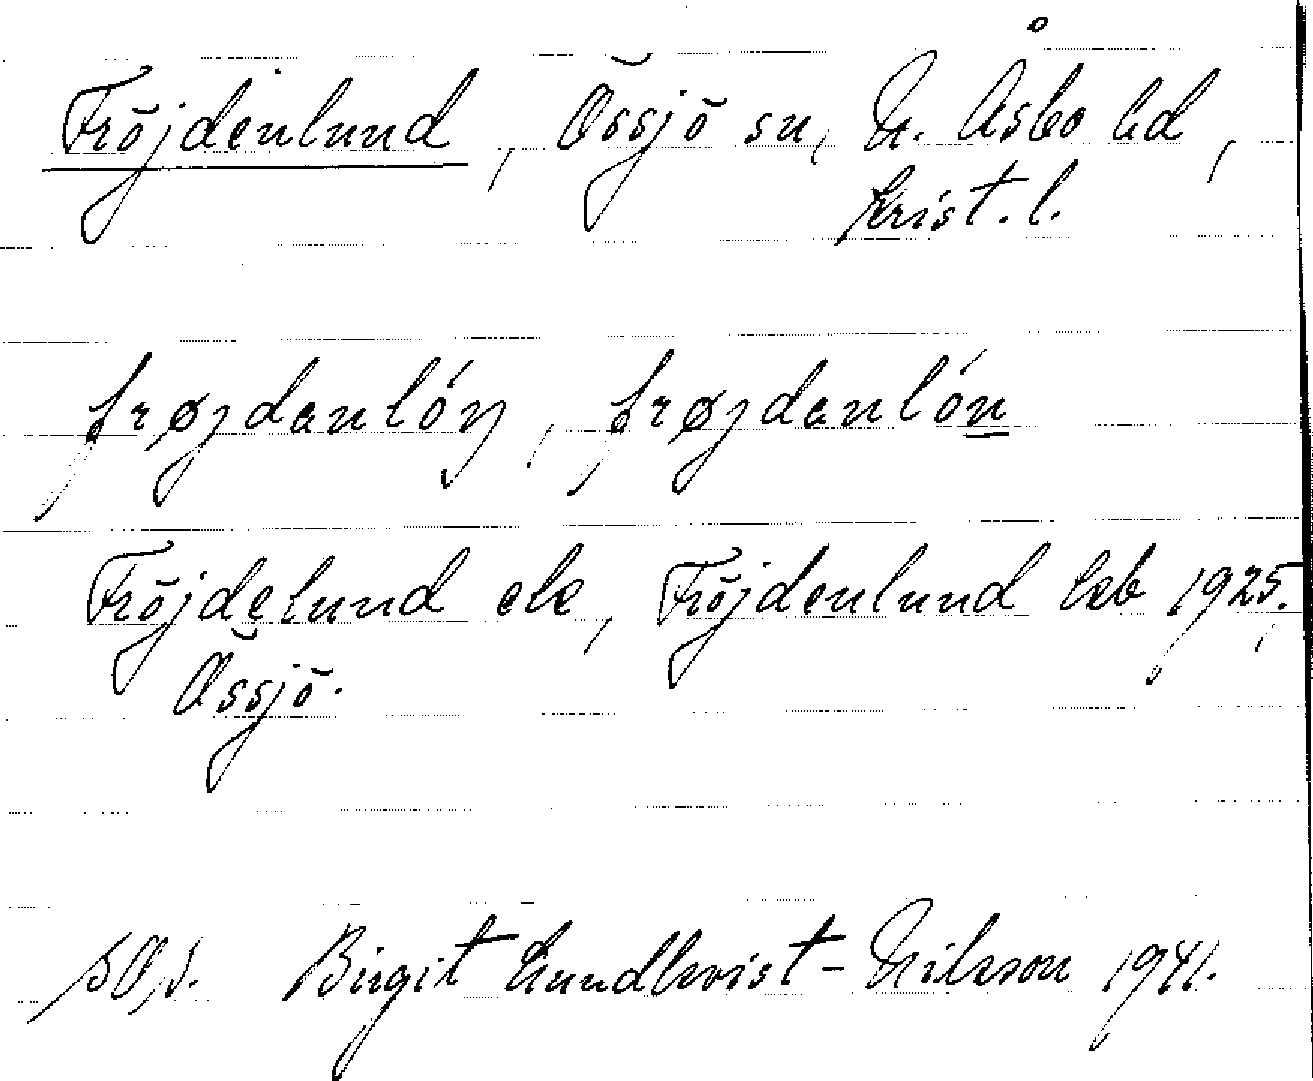 Fröjdenlund, Össjö sn, N. Åsbo hd,
Krist. l.
frøjdanlón, frøjdanlón
Fröjdelund ek, Fröjdenlund kb 1925,
Össjö.
Birgit Lundkvist-Nilsson 1941.